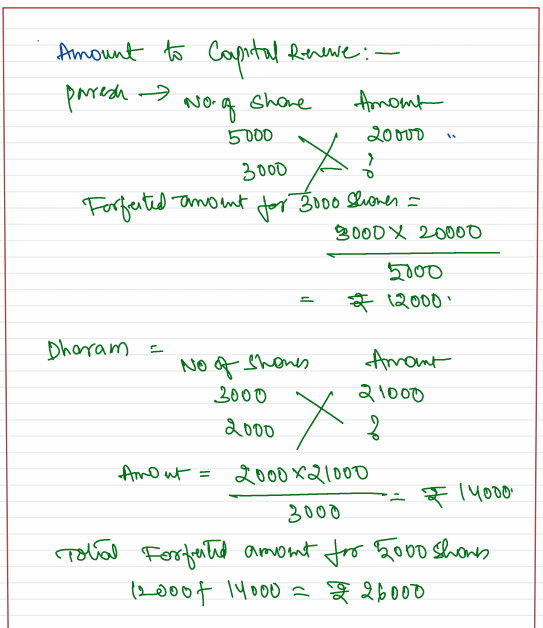 Amount to Capital Reserve:—
Paresh → No. of Share Amount
5000 20000 "
3000 ?
Forfeited amount for 3000 Shares =
3000 X 20000
5000
= ₹ 12000.
Dharam = No of Shares Amount
3000 21000
2000 ?
Amount = 2000 X 21000
3000
= ₹ 14000.
Total Forfeited amount for 5000 Shares
12000 + 14000 = ₹ 26000